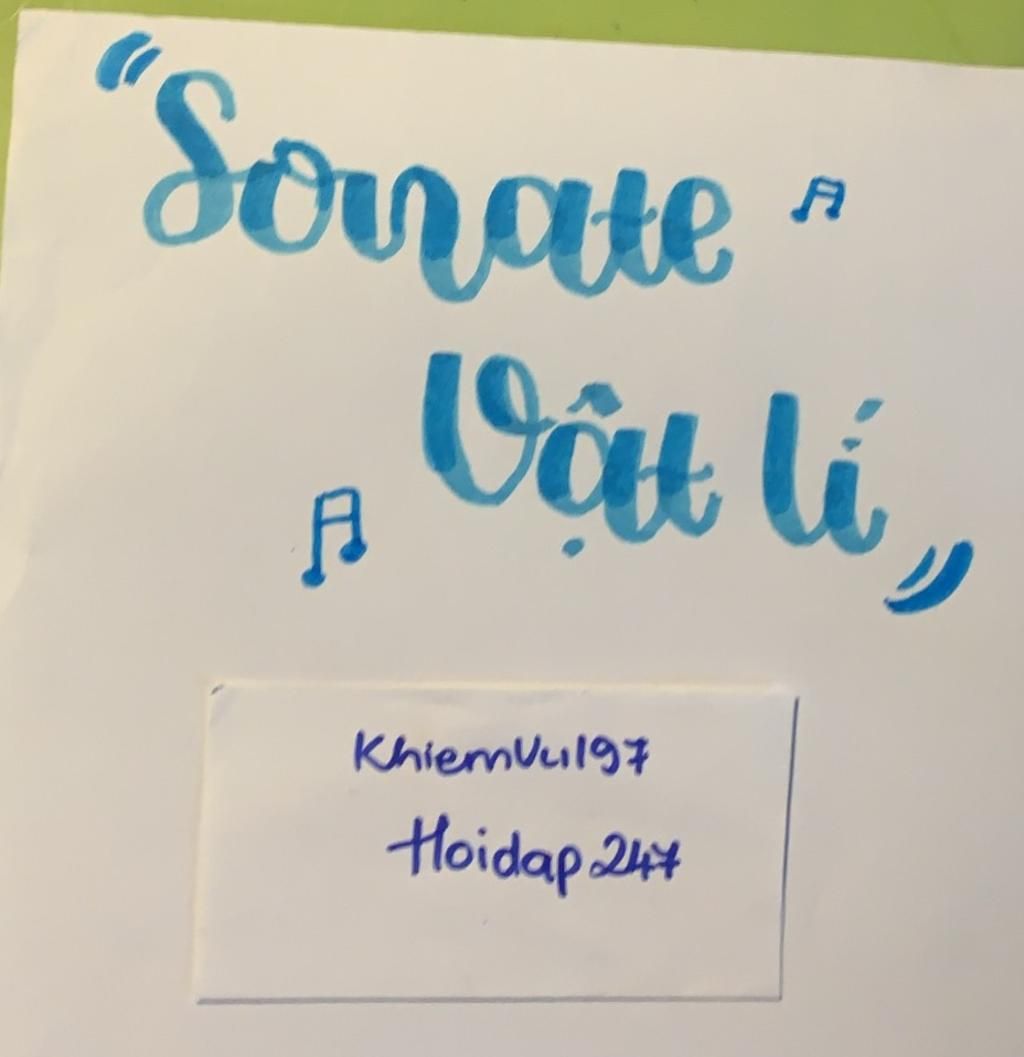 "Sonate
Vật lí"
KhiemVu197
Hoidap247